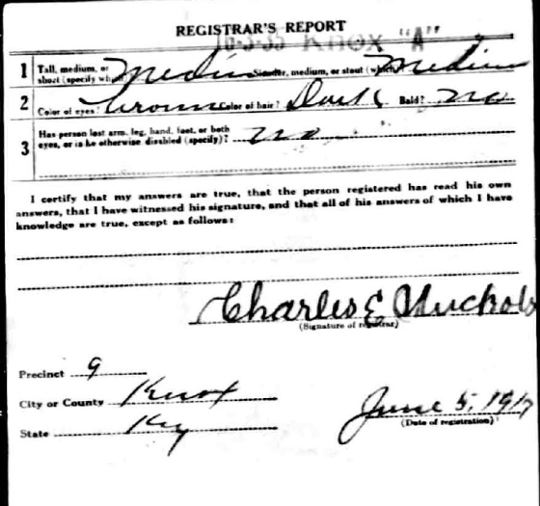 REGISTRAR'S REPORT
10-3-35 Knox "A"
1 Tall, medium, or short (specify which)? Medium Slender, medium, or stout (which)? Medium
2 Color of eyes? Brown Color of hair? Dark Bald? No
3 Has person lost arm, leg, hand, foot, or both
eyes, or is he otherwise disabled (specify)? No
I certify that my answers are true, that the person registered has read his own
answers, that I have witnessed his signature, and that all of his answers of which I have
knowledge are true, except as follows:
Charles E Nuckols
(Signature of registrar)
Precinct 9
City or County Knox
State Ky
June 5, 1917
(Date of registration)